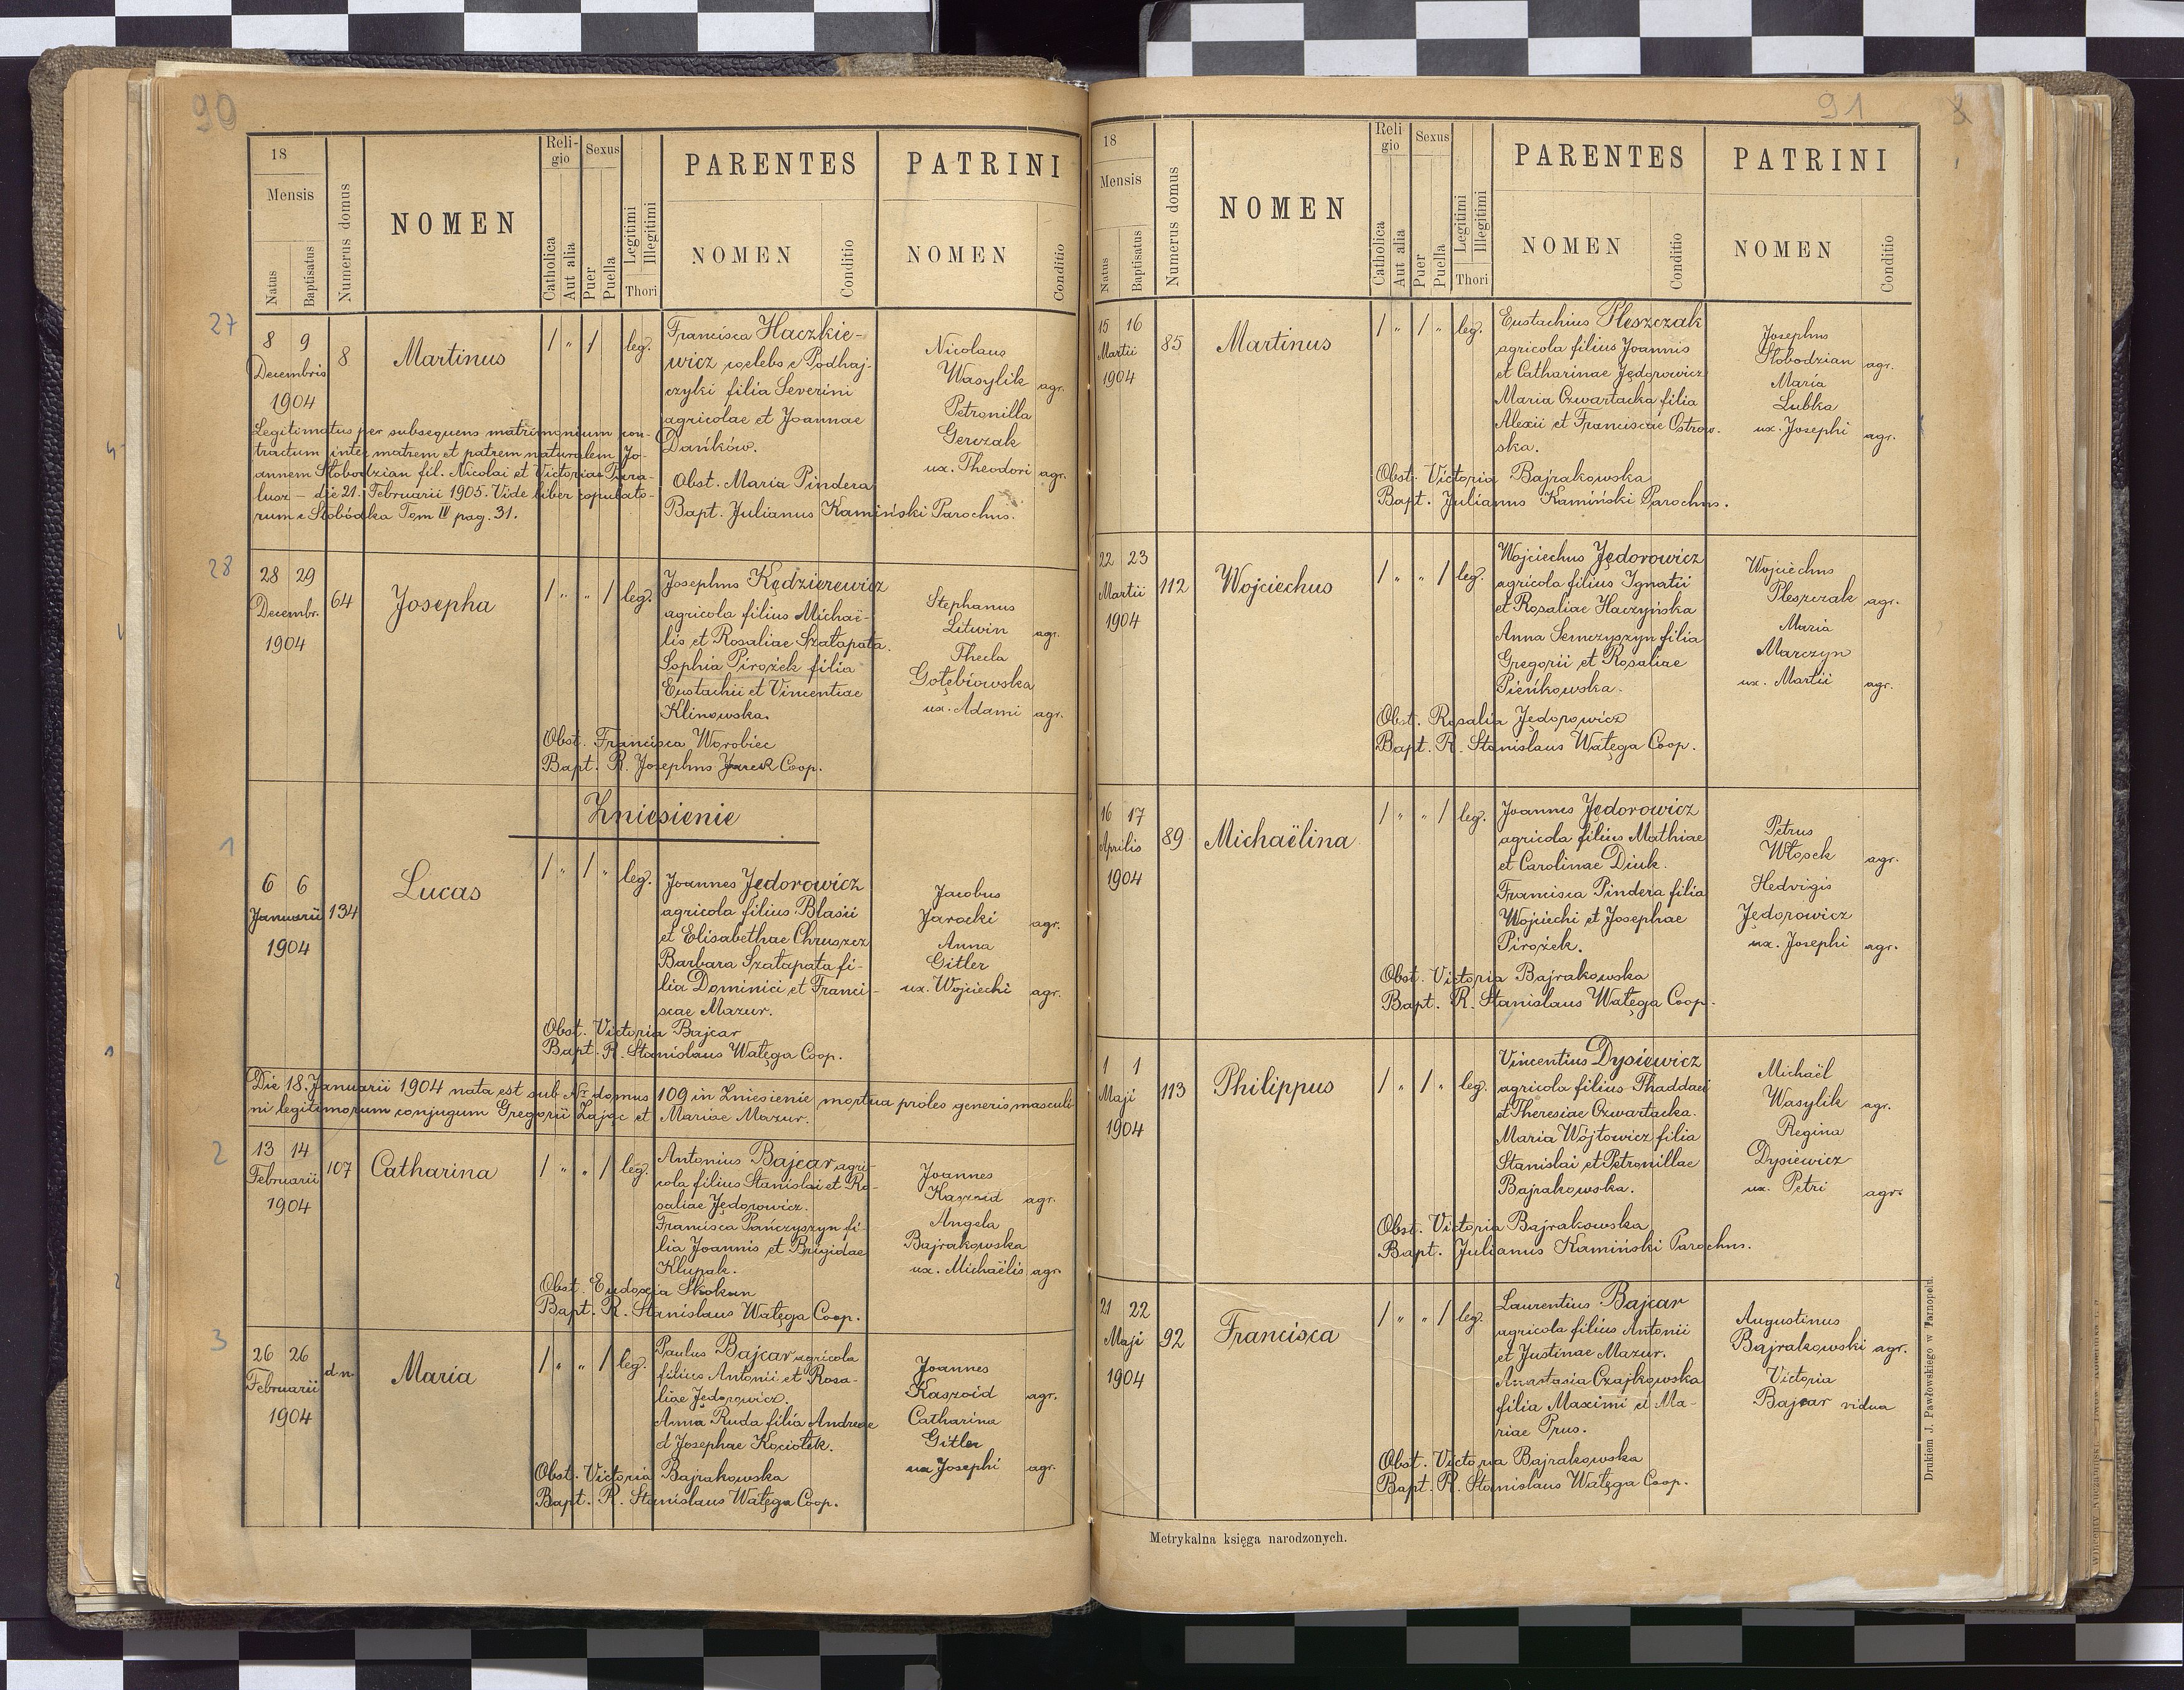 90
18
Mensis
Natus
Baptisatus
Numerus domus
NOMEN
Reli-
gio
Catholica
Aut alia
Sexus
Puer
Puella
Legitimi
Illegitimi
Thori
PARENTES
NOMEN
Conditio
PATRINI
NOMEN
Conditio
27
8 9
Decembris
1904
8
Martinus
1 " 1 leg.
Francisca Haczkie-
wicz coelebs e Podhaj-
czyki filia Severini
agricolae et Joannae
Dańków.
Obst. Maria Pindera
Bapt. Julianus Kamiński Parochus.
Nicolaus
Wasylik agr.
Petronilla
Gerczak
ux. Theodori agr.
Legitimatus per subsequens matrimonium con-
tractum inter matrem et patrem naturalem Jo-
annem Słobodzian fil. Nicolai et Victoriae Para-
lusz – die 21. Februarii 1905. Vide liber copulato-
rum e Słobódka Tom III pag. 31.
28
28 29
Decembr.
1904
64
Josepha
1 " " 1 leg.
Josephus Kędzierewicz
agricola filius Michaë-
lis et Rosaliae Szałapata.
Sophia Pirożek filia
Eustachii et Vincentiae
Klinowska.
Obst. Francisca Worobiec
Bapt. R. Josephus Jarek Coop.
Stephanus
Litwin agr.
Thecla
Gołębiowska
ux. Adami agr.
Zniesienie
1
6 6
Januarii
1904
134
Lucas
1 " 1 " leg.
Joannes Jędorowicz
agricola filius Blasii
et Elisabethae Chruszcz
Barbara Szałapata fi-
lia Dominici et Franci-
scae Mazur.
Obst. Victoria Bajcar
Bapt. R. Stanislaus Wałęga Coop.
Jacobus
Jarocki agr.
Anna
Gitler
ux. Wojciechi agr.
Die 18. Januarii 1904 nata est sub Nr domus 109 in Zniesienie mortua proles generis masculi-
ni legitimorum conjugum Gregorii Zając et Mariae Mazur.
2
13 14
Februarii
1904
107
Catharina
1 " " 1 leg.
Antonius Bajcar agri-
cola filius Stanislai et Ro-
saliae Jędorowicz.
Francisca Pańczyszyn fi-
lia Joannis et Brigidae
Klupak.
Obst. Eudoxia Skokun
Bapt. R. Stanislaus Wałęga Coop.
Joannes
Kaszoid agr.
Angela
Bajrakowska
ux. Michaëlis agr.
3
26 26
Februarii
1904
d n.
Maria
1 " " 1 leg.
Paulus Bajcar agricola
filius Antonii et Rosa-
liae Jędorowicz.
Anna Ruda filia Andreae
et Josephae Kociołek.
Obst. Victoria Bajrakowska
Bapt. R. Stanislaus Wałęga Coop.
Joannes
Kaszoid agr.
Catharina
Gitler
ux Josephi agr.
91
18
Mensis
Natus
Baptisatus
Numerus domus
NOMEN
Reli
gio
Catholica
Aut alia
Sexus
Puer
Puella
Legitimi
Illegitimi
Thori
PARENTES
NOMEN
Conditio
PATRINI
NOMEN
Conditio
15 16
Martii
1904
85
Martinus
1 " 1 " leg.
Eustachius Pleszczak
agricola filius Joannis
et Catharinae Jędorowicz
Maria Czwartacka filia
Alexii et Franciscae Ostrow-
ska.
Obst. Victoria Bajrakowska
Bapt. Julianus Kamiński Parochus.
Josephus
Słobodzian agr.
Maria
Lubka
ux. Josephi agr.
22 23
Martii
1904
112
Wojciechus
1 " " 1 leg.
Wojciechus Jędorowicz
agricola filius Ignatii
et Rosaliae Haczyńska
Anna Semczyszyn filia
Gregorii et Rosaliae
Pieńkowska.
Obst. Rosalia Jędorowicz
Bapt. R. Stanislaus Wałęga Coop.
Wojciechus
Pleszczak agr.
Maria
Marczyn
ux. Martii agr.
16 17
Aprilis
1904
89
Michaëlina
1 " " 1 leg.
Joannes Jędorowicz
agricola filius Mathiae
et Carolinae Diuk.
Francisca Pindera filia
Wojciechi et Josephae
Pirożek.
Obst. Victoria Bajrakowska
Bapt. R. Stanislaus Wałęga Coop.
Petrus
Włosek agr.
Hedvigis
Jędorowicz
ux. Josephi agr.
1 1
Maji
1904
113
Philippus
1 " 1 " leg.
Vincentius Dysiewicz
agricola filius Thaddaei
et Theresiae Czwartacka.
Maria Wójtowicz filia
Stanislai et Petronillae
Bajrakowska.
Obst. Victoria Bajrakowska
Bapt. Julianus Kamiński Parochus.
Michaël
Wasylik agr.
Regina
Dysiewicz
ux. Petri agr.
21 22
Maji
1904
92
Francisca
1 " " 1 leg.
Laurentius Bajcar
agricola filius Antonii
et Justinae Mazur.
Anastasia Czajkowska
filia Maximi et Ma-
riae Prus.
Obst. Victoria Bajrakowska
Bapt. R. Stanislaus Wałęga Coop.
Augustinus
Bajrakowski agr.
Victoria
Bajcar vidua
Metrykalna księga narodzonych.
Drukiem J. Pawłowskiego w Tarnopolu.